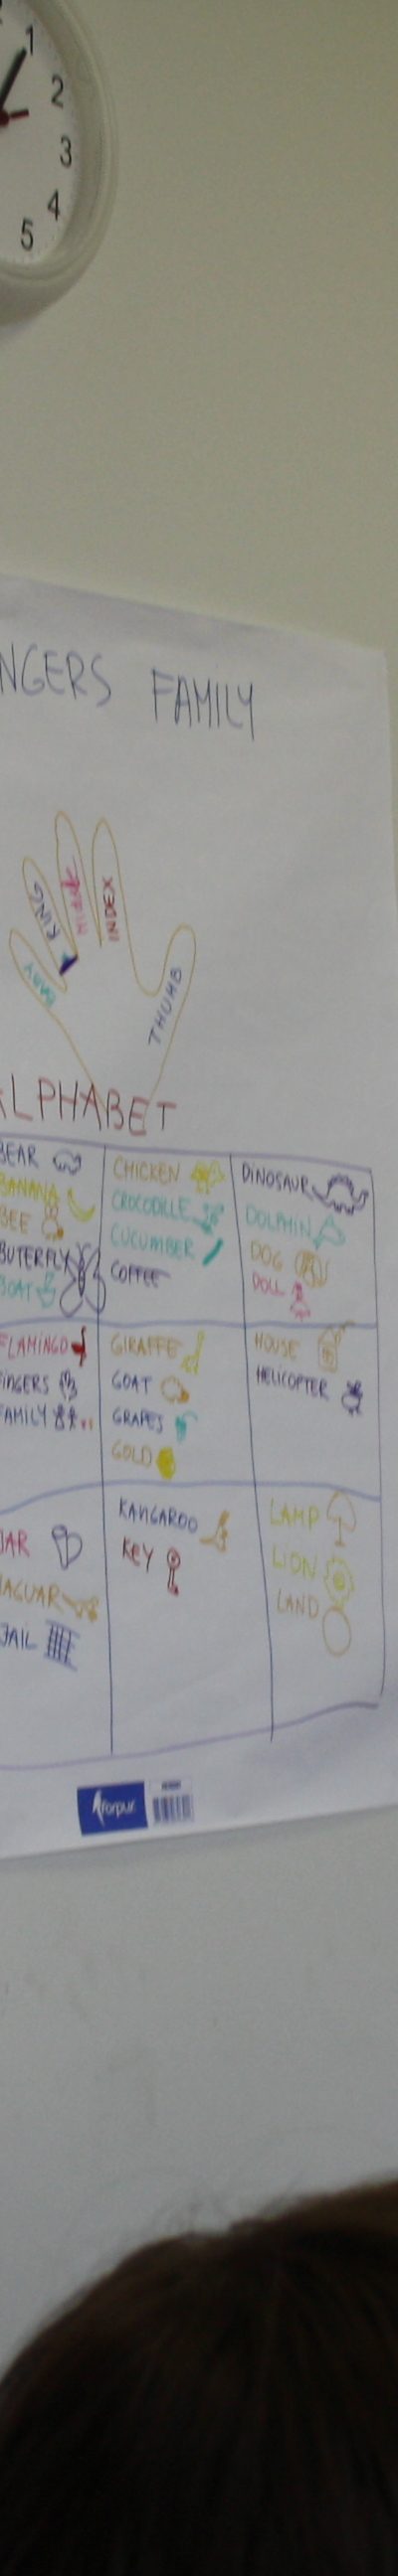 1
2
3
4
5
NGERS FAMILY
BABY
RING
MIDDLE
INDEX
THUMB
ALPHABET
BEAR
BANANA
BEE
BUTERFLY
BOAT
CHICKEN
CROCODILE
CUCUMBER
COFFEE
DINOSAUR
DOLPHIN
DOG
DOLL
FLAMINGO
FINGERS
FAMILY
GIRAFFE
GOAT
GRAPES
GOLD
HOUSE
HELICOPTER
JAR
JAGUAR
JAIL
KANGAROO
KEY
LAMP
LION
LAND